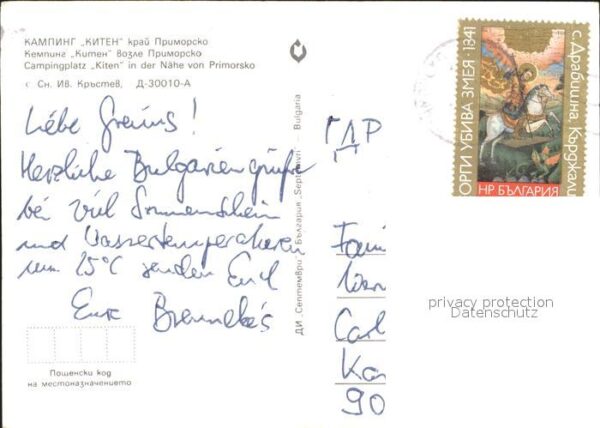 КАМПИНГ „КИТЕН" край Приморско
Кемпинг „Китен" возле Приморско
Campingplatz „Kiten" in der Nähe von Primorsko
с Сн. Ив. Кръстев, Д-30010-А
Liebe Greiws!
Herzliche Bulgariengrüße
bei viel Sonnenschein
und Wassertemperaturen
um 25°C senden Euch
Eure Brennekes
Пощенски код
на местоназначението
ДИ „Септември" България „Septemvri" - Bulgaria
ГДР
Fami
Wer
Carl
Ka
90
ОРГИ УБИВА ЗМЕЯ·1841
с. Драбишна, Кърджали
НР БЪЛГАРИЯ
privacy protection
Datenschutz